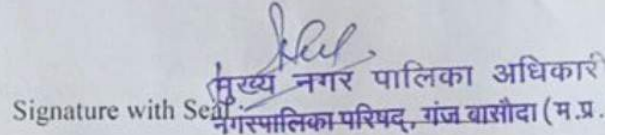 मुख्य नगर पालिका अधिकारी
Signature with Seal नगरपालिका परिषद्, गंज बासौदा (म.प्र.